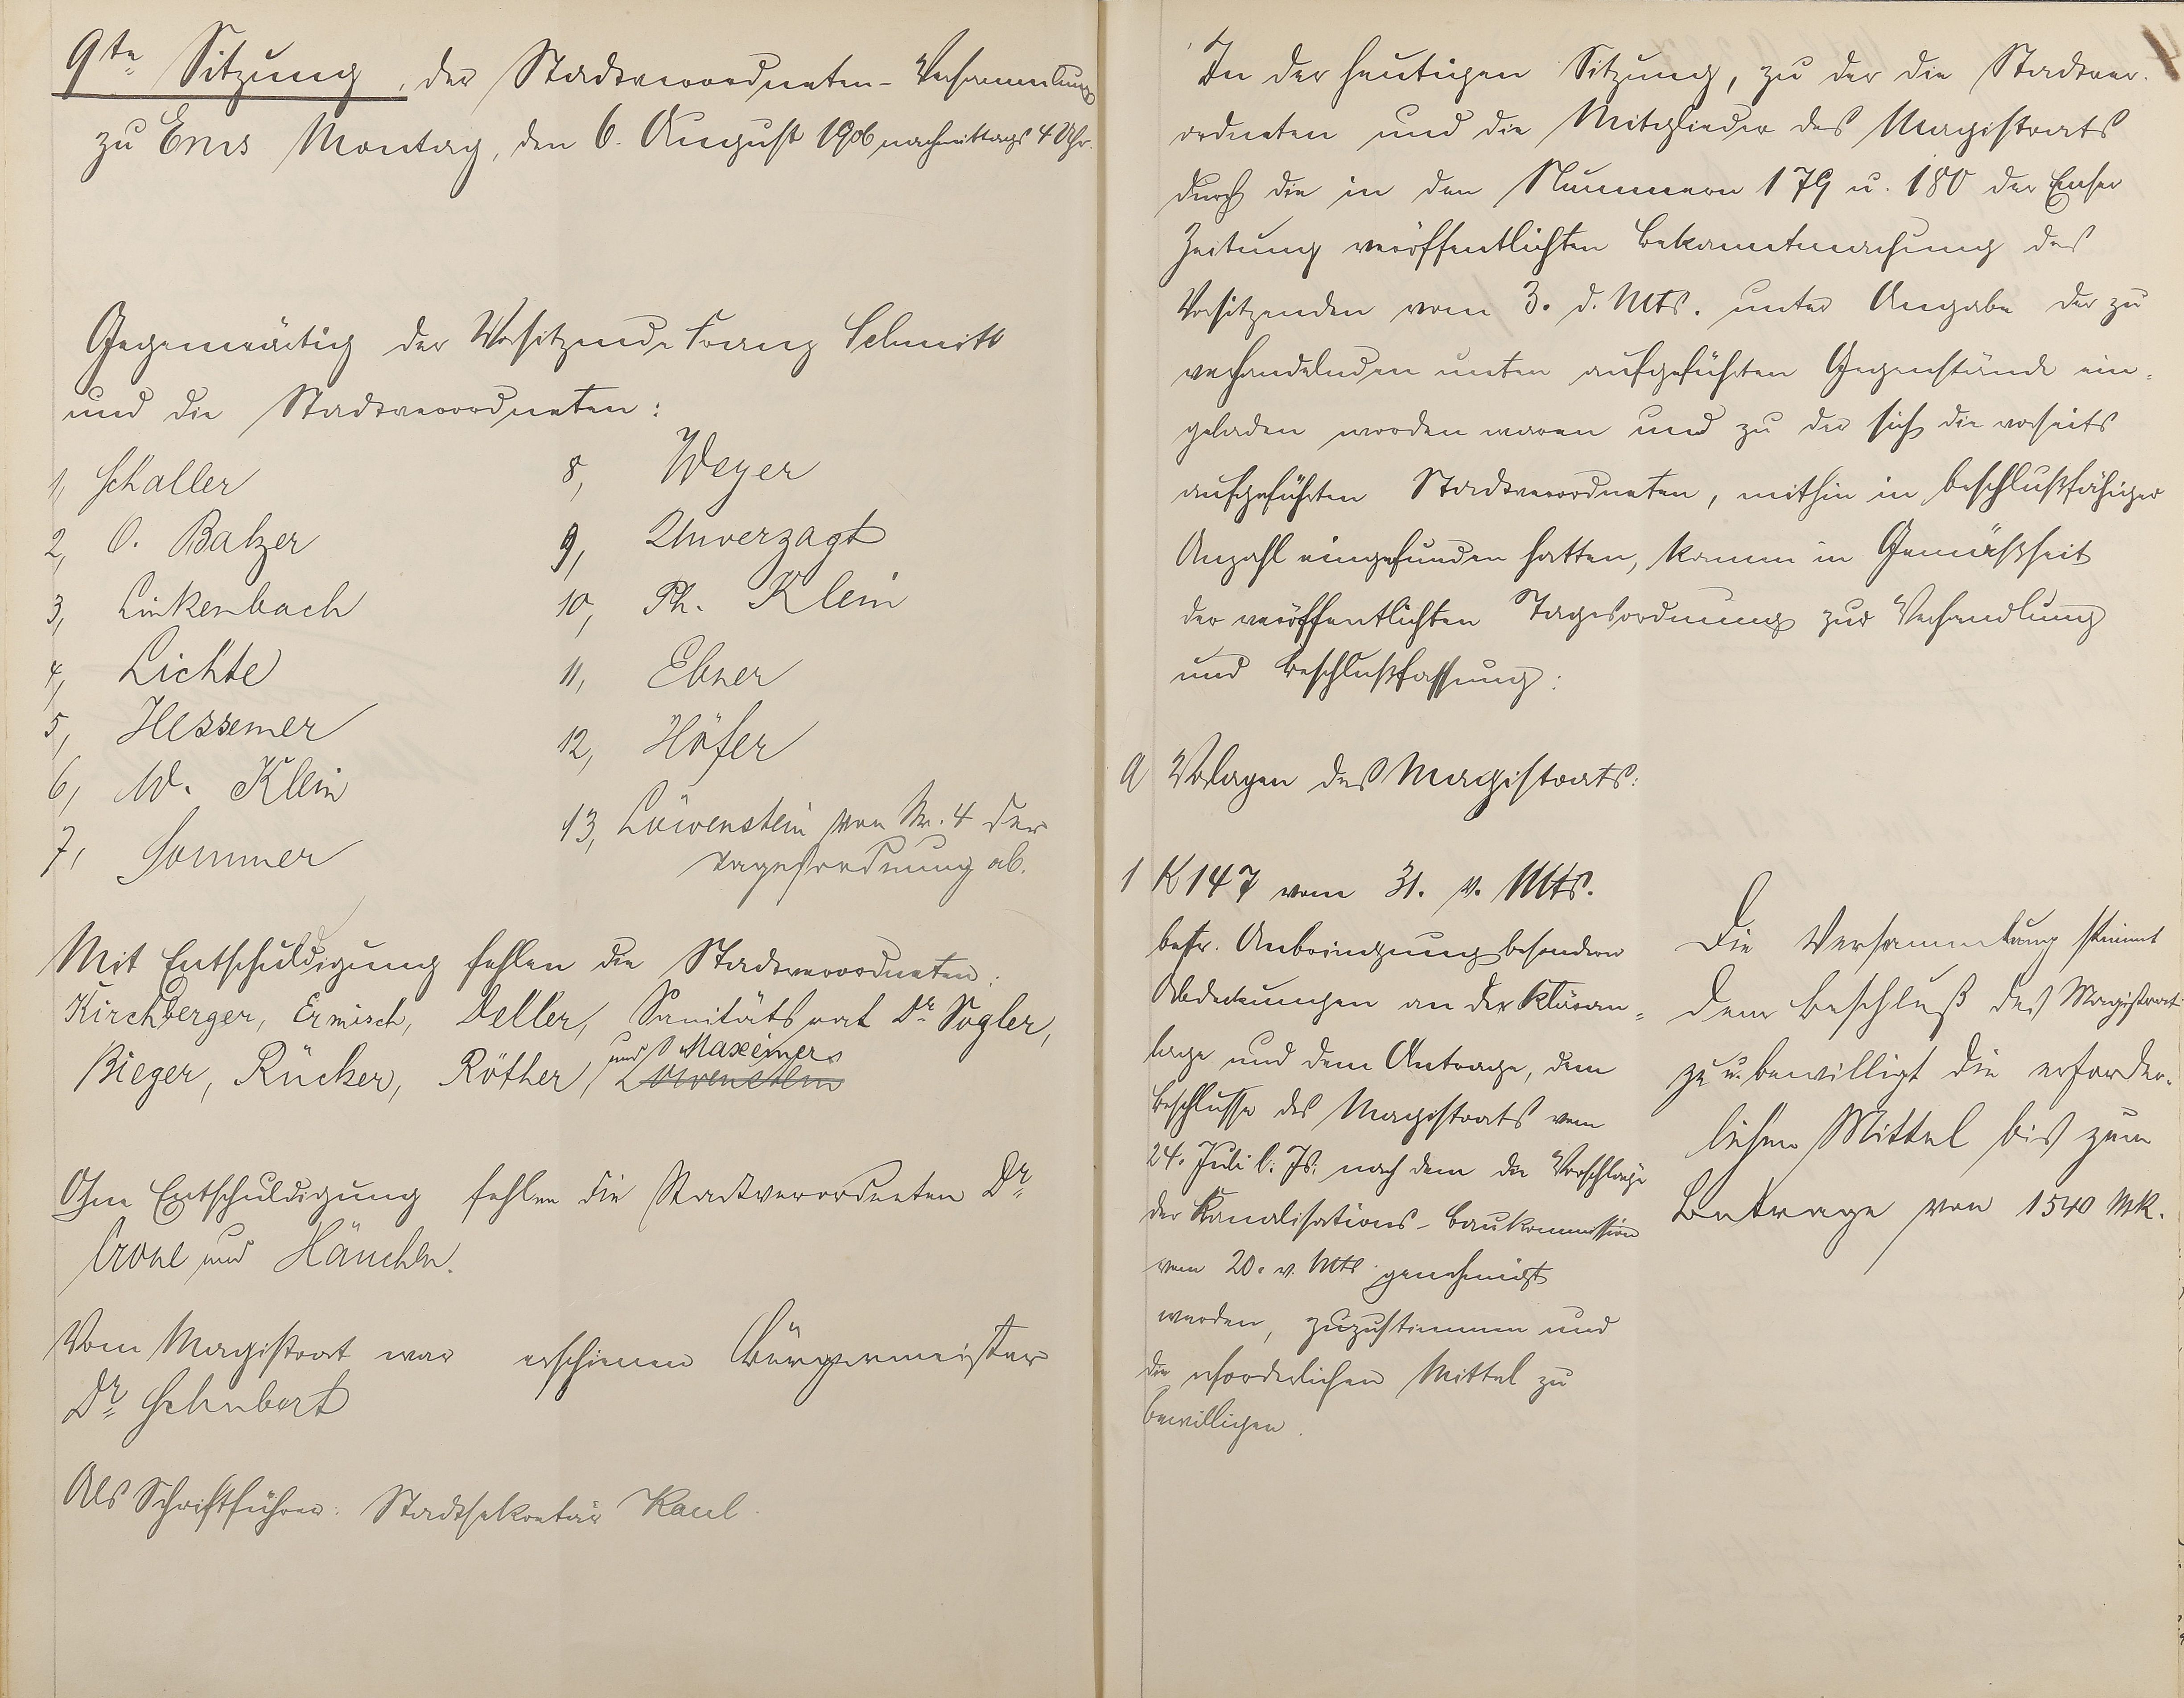 9te Sitzung, der Stadtverordneten-Versammlung
zu Ems Montag, den 6. August 1906 nachmittags 4 Uhr.
Gegenwärtig der Vorsitzende Franz Schmitt
und die Stadtverordneten:
1, Schaller
2, O. Balzer
3, Linkenbach
4, Lichte
5, Hessemer
6, W. Klein
7, Sommer
8, Weyer
9, Unverzagt
10, Ph. Klein
11, Ebner
12, Höfer
13, Löwenstein von Nr. 4 der
Tagesordnung ab.
Mit Entschuldigung fehlen die Stadtverordneten:
Kirchberger, Ermisch, Deller, Sanitätsrat Dr. Vogler,
und Maxeiner
Bieger, Rücker, Röther, Löwenstein
Ohne Entschuldigung fehlen die Stadtverordneten Dr.
und Hänchen.
Vom Magistrat war erschienen Bürgermeister
Dr. Schubert
Als Schriftführer: Stadtsekretär Kaul.
In der heutigen Sitzung, zu der die Stadtver-
ordneten und die Mitglieder des Magistrats
durch die in den Nummern 179 u. 180 der Emser
Zeitung veröffentlichten Bekanntmachung des
Vorsitzenden vom 3. d. Mts. unter Angabe der zu
verhandelnden unten aufgeführten Gegenstände ein-
geladen worden waren und zu der sich die vorseits
aufgeführten Stadtverordneten, mithin in beschlußfähiger
Anzahl eingefunden hatten, kamen in Gemäßheit
der veröffentlichten Tagesordnung zur Verhandlung
und Beschlußfassung:
A Vorlagen des Magistrats:
1 K 147 vom 31. v. Mts.
betr. Anbringung besondern
Abdeckungen an der Kläran-
lage und dem Antrage, dem
Beschlusse des Magistrats vom
24. Juli l. Js. nach dem die Vorschläge
der Kanalisations-Baukommission
vom 20. v. Mts. genehmigt
werden, zuzustimmen und
die erforderlichen Mittel zu
bewilligen.
Die Versammlung stimmt
dem Beschluß des Magistrat
zu u. bewilligt die erforder-
lichen Mittel bis zum
Betrage von 1540 Mk.